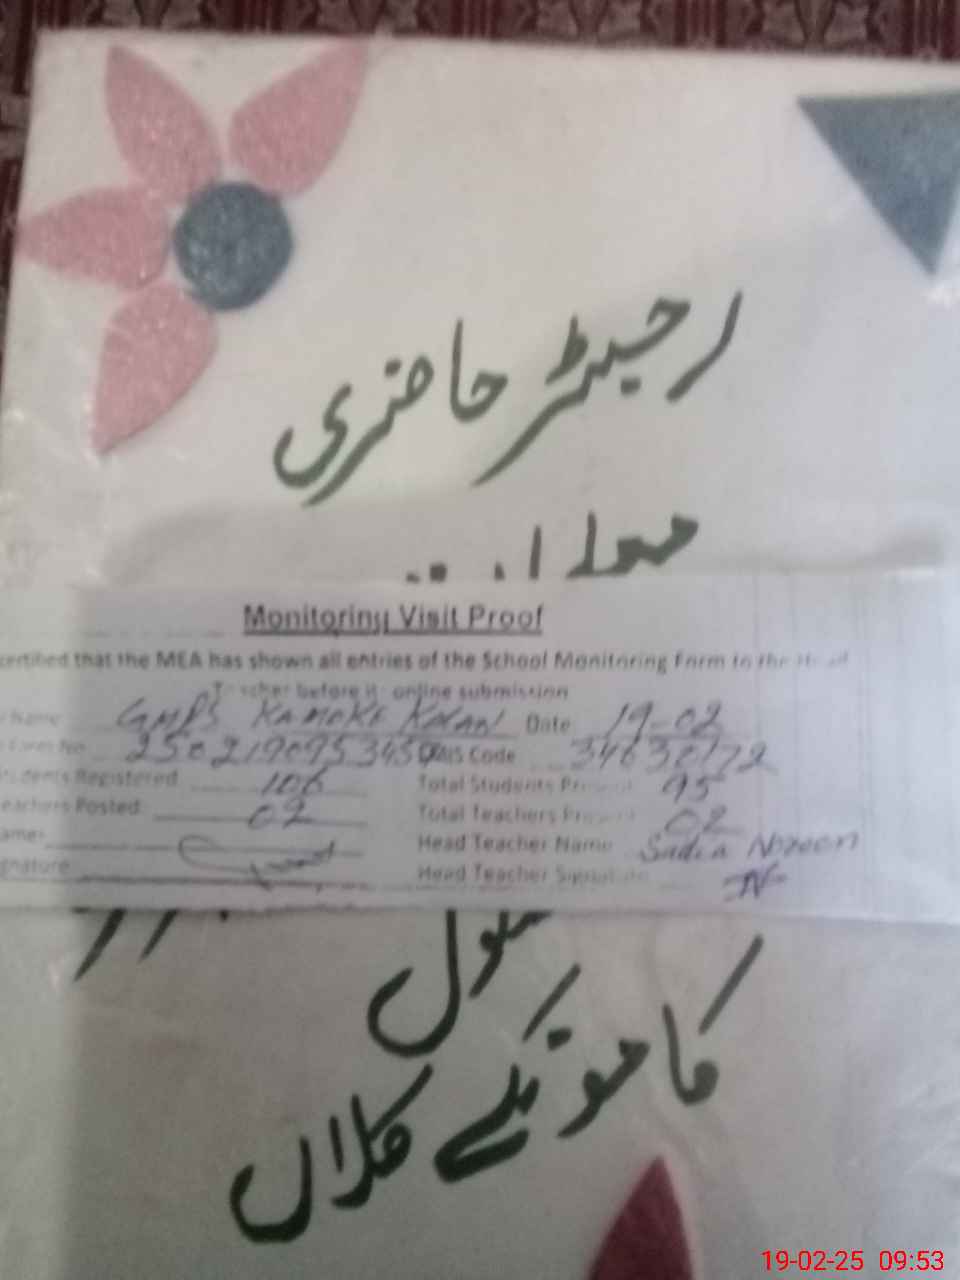 رجسٹر حاضری
Monitoring Visit Proof
certified that the MEA has shown all entries of the School Monitoring Form to the Head
Teacher before it online submission
Name GMPS KAMOKE KALAN Date 19-02
Form No Code 34630172
Students Registered 106 Total Students Present 95
Teachers Posted 02 Total Teachers Present 02
Name: Head Teacher Name Sadia
Signature Head Teacher Signature
کاموکے کلاں
19-02-25 09:53